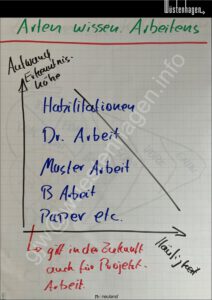 Wüstenhagen
Arten wissen. Arbeitens
Aufwand
Erkenntnis-
höhe
Habilitationen
Dr. Arbeit
Master Arbeit
B Arbeit
Paper etc.
Häufigkeit
gilt in der Zukunft
auch für Projekt.
Arbeit.
neuland